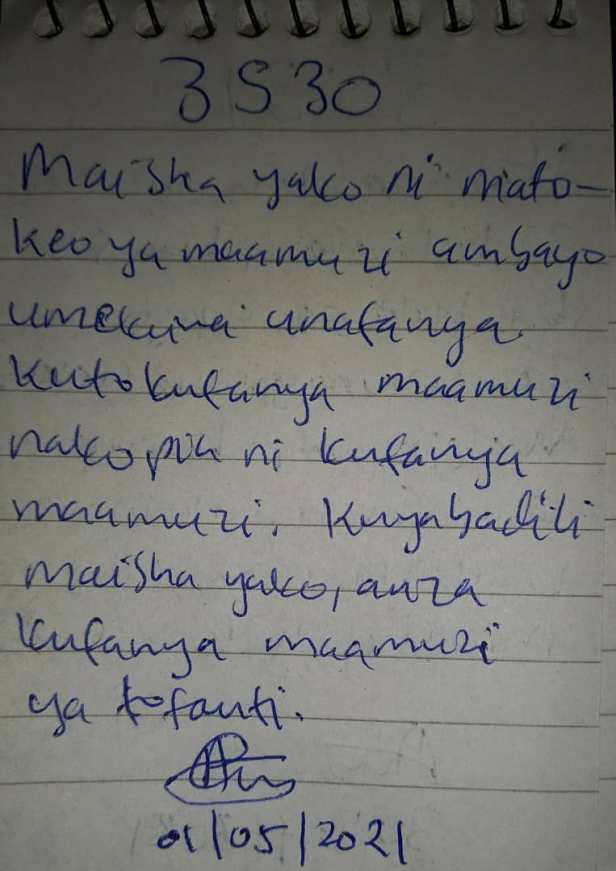 3530
Maisha yako ni mato-
keo ya maamuzi ambayo
umekuwa unafanya.
Kutokufanya maamuzi
nako pia ni kufanya
maamuzi. Kuyabadili
maisha yako, anza
kufanya maamuzi
ya tofauti.
01/05/2021